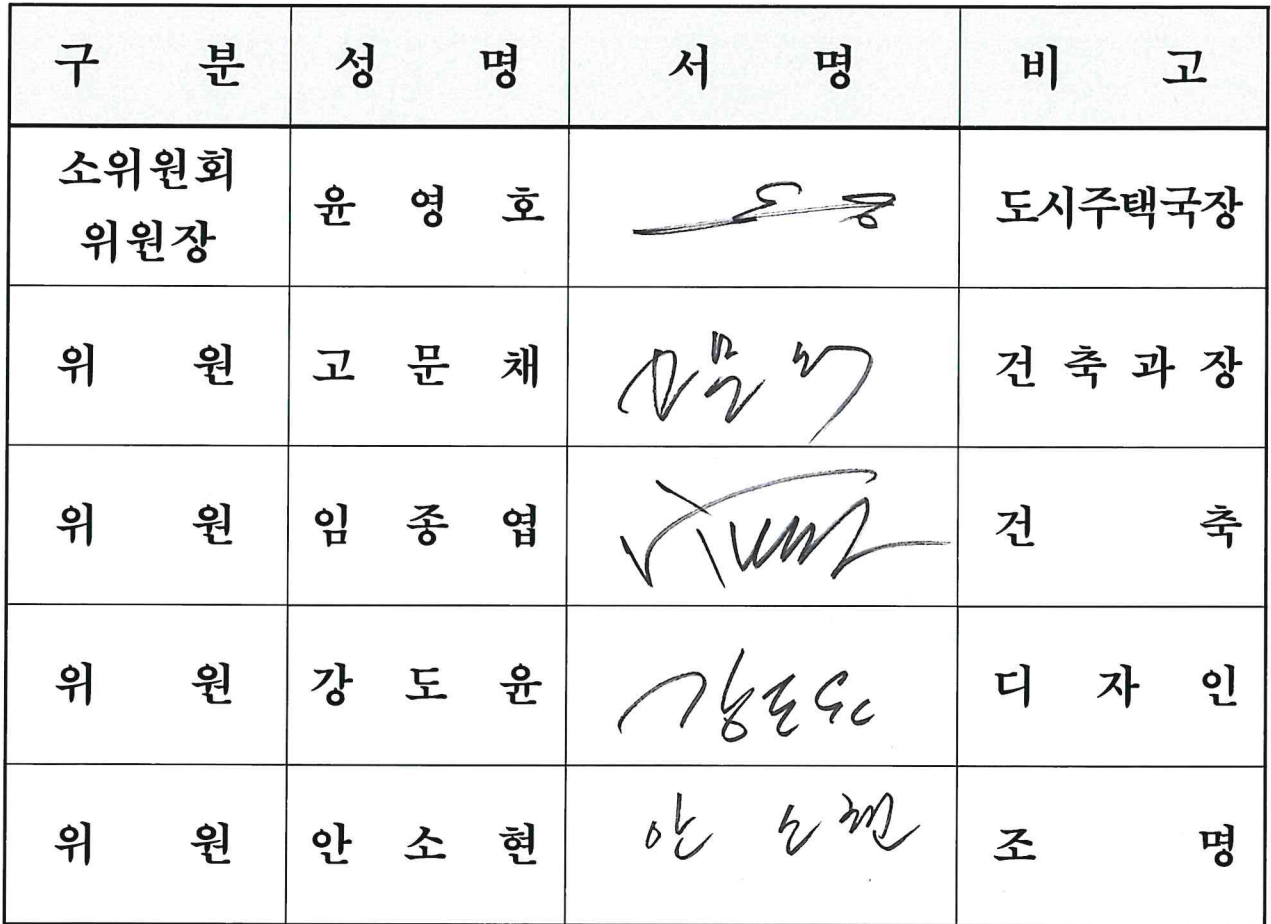 구 분 성 명 서 명 비 고
소위원회
위원장
윤 영 호 도시주택국장
위 원 고 문 채 건 축 과 장
위 원 임 종 엽 건 축
위 원 강 도 윤 강도윤 디 자 인
위 원 안 소 현 안 소 현 조 명